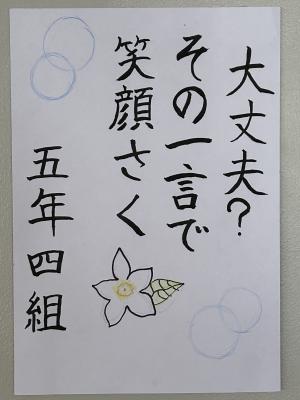 大丈夫?
その一言で
笑顔さく
五年四組